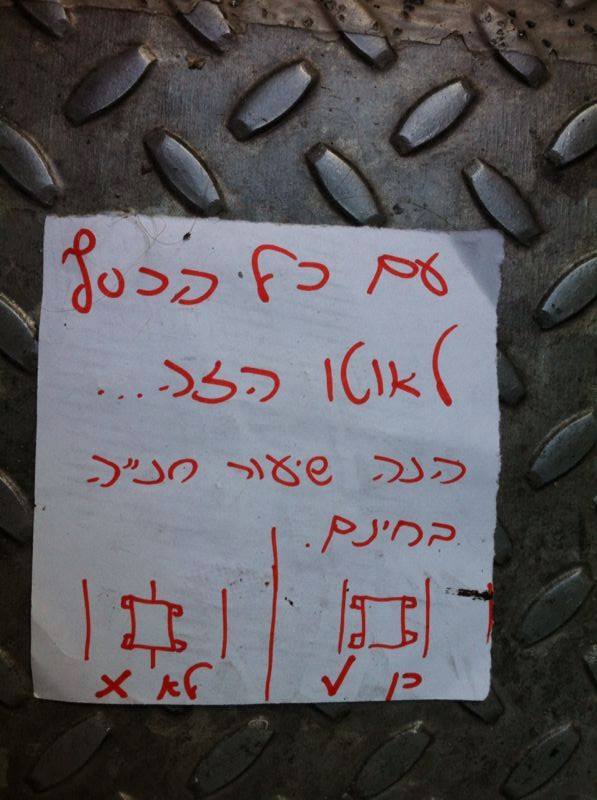 עם כל הכסף
לאוטו הזה...
הנה שיעור חנייה
בחינם.
כן ✓
לא x